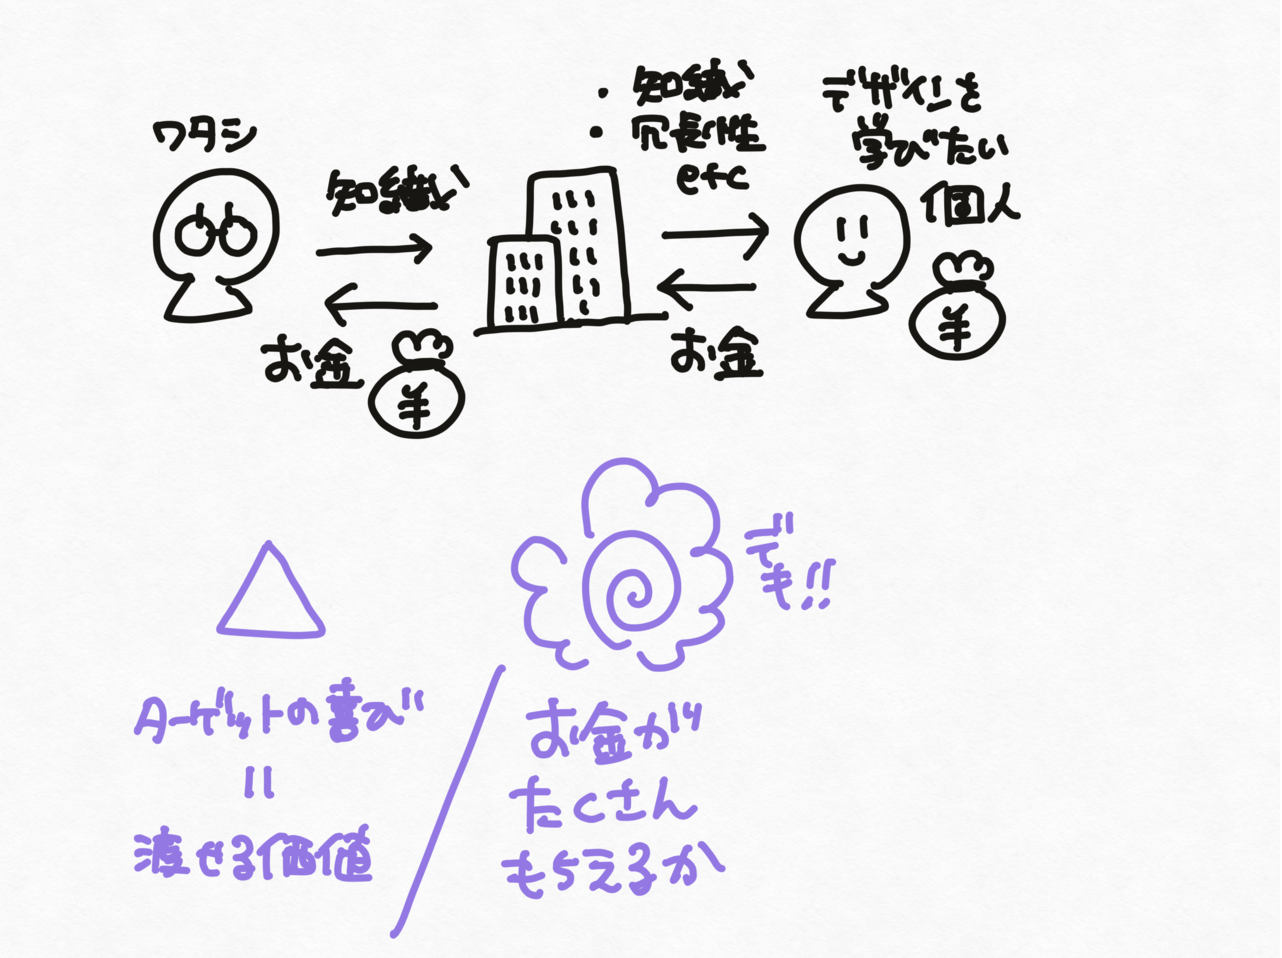 ワタシ
知識
・知識
・冗長性
etc
デザインを
学びたい
個人
お金
¥
お金
¥
ターゲットの喜び
=
渡せる価値
でも!!
お金が
たくさん
もらえるか